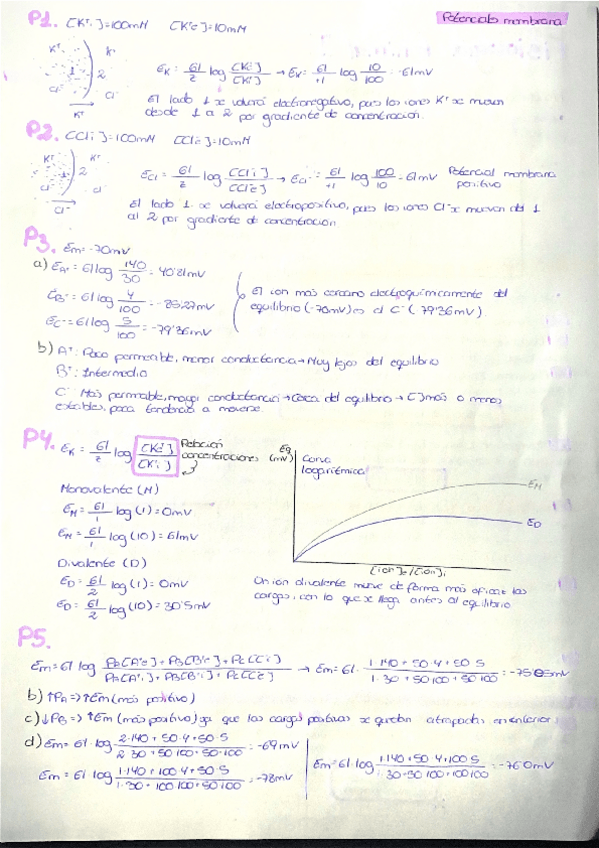 Potenciales membrana
P1. [K⁺i] = 100mM [K⁺e] = 10mM
K⁺ K⁺
1 2
Cl⁻ Cl⁻
K⁺
EK = 61/z log [K⁺e]/[K⁺i] → EK = 61/+1 log 10/100 = -61mV
El lado 1 se volverá electronegativo, pues los iones K⁺ se mueven
desde 1 a 2 por gradiente de concentración.
P2. [Cl⁻i] = 100mM [Cl⁻e] = 10mM
K⁺ K⁺
1 2
Cl⁻ Cl⁻
Cl⁻
ECl = 61/z log [Cl⁻i]/[Cl⁻e] → ECl⁻ = 61/+1 log 100/10 = 61mV Potencial membrana
positivo
El lado 1 se volverá electropositivo, pues los iones Cl⁻ se mueven del 1
al 2 por gradiente de concentración
P3. Em = -70mV
a) EA⁺ = 61 log 140/30 = 40'81mV
EB⁺ = 61 log 4/100 = -85,27mV
EC⁻ = 61 log 5/100 = -79'36mV
El ion más cercano electroquímicamente del
equilibrio (-70mV) es el C⁻ (79'36mV)
b) A⁺: Poco permeable, menor conductancia → Muy lejos del equilibrio
B⁺: Intermedia
C⁻: Más permeable, mayor conductancia → Cerca del equilibrio → [] más o menos
estables, poca tendencia a moverse.
P4. EK = 61/z log [K⁺e]/[K⁺i] Relación
concentraciones
Monovalente (M)
EM = 61/1 log (1) = 0mV
EM = 61/1 log (10) = 61mV
Divalente (D)
ED = 61/2 log (1) = 0mV
ED = 61/2 log (10) = 30'5mV
Eq
(mV)
Curva
logarítmica
EM
ED
[ion]e/[ion]i
Un ion divalente mueve de forma más eficaz las
cargas, con lo que se llega antes al equilibrio
P5.
Em = 61 log PA[A⁺e] + PB[B⁺e] + PC[C⁻i] / PA[A⁺i] + PB[B⁺i] + PC[C⁻e] → Em = 61 · 1·140 + 50·4 + 50·5 / 1·30 + 50·100 + 50·100
b) ↑PA => ↑Em (más positivo)
c) ↓PB => ↑Em (más positivo) ya que las cargas positivas se quedan atrapadas en interior
d) Em = 61 · log 2·140 + 50·4 + 50·5 / 2·30 + 50·100 + 50·100 = -69mV
Em = 61 log 1·140 + 100·4 + 50·5 / 1·30 + 100·100 + 50·100 = -78mV
Em = 61 · log 1·140 + 50·4 + 100·5 / 1·30 + 50·100 + 100·100 = -76'0mV